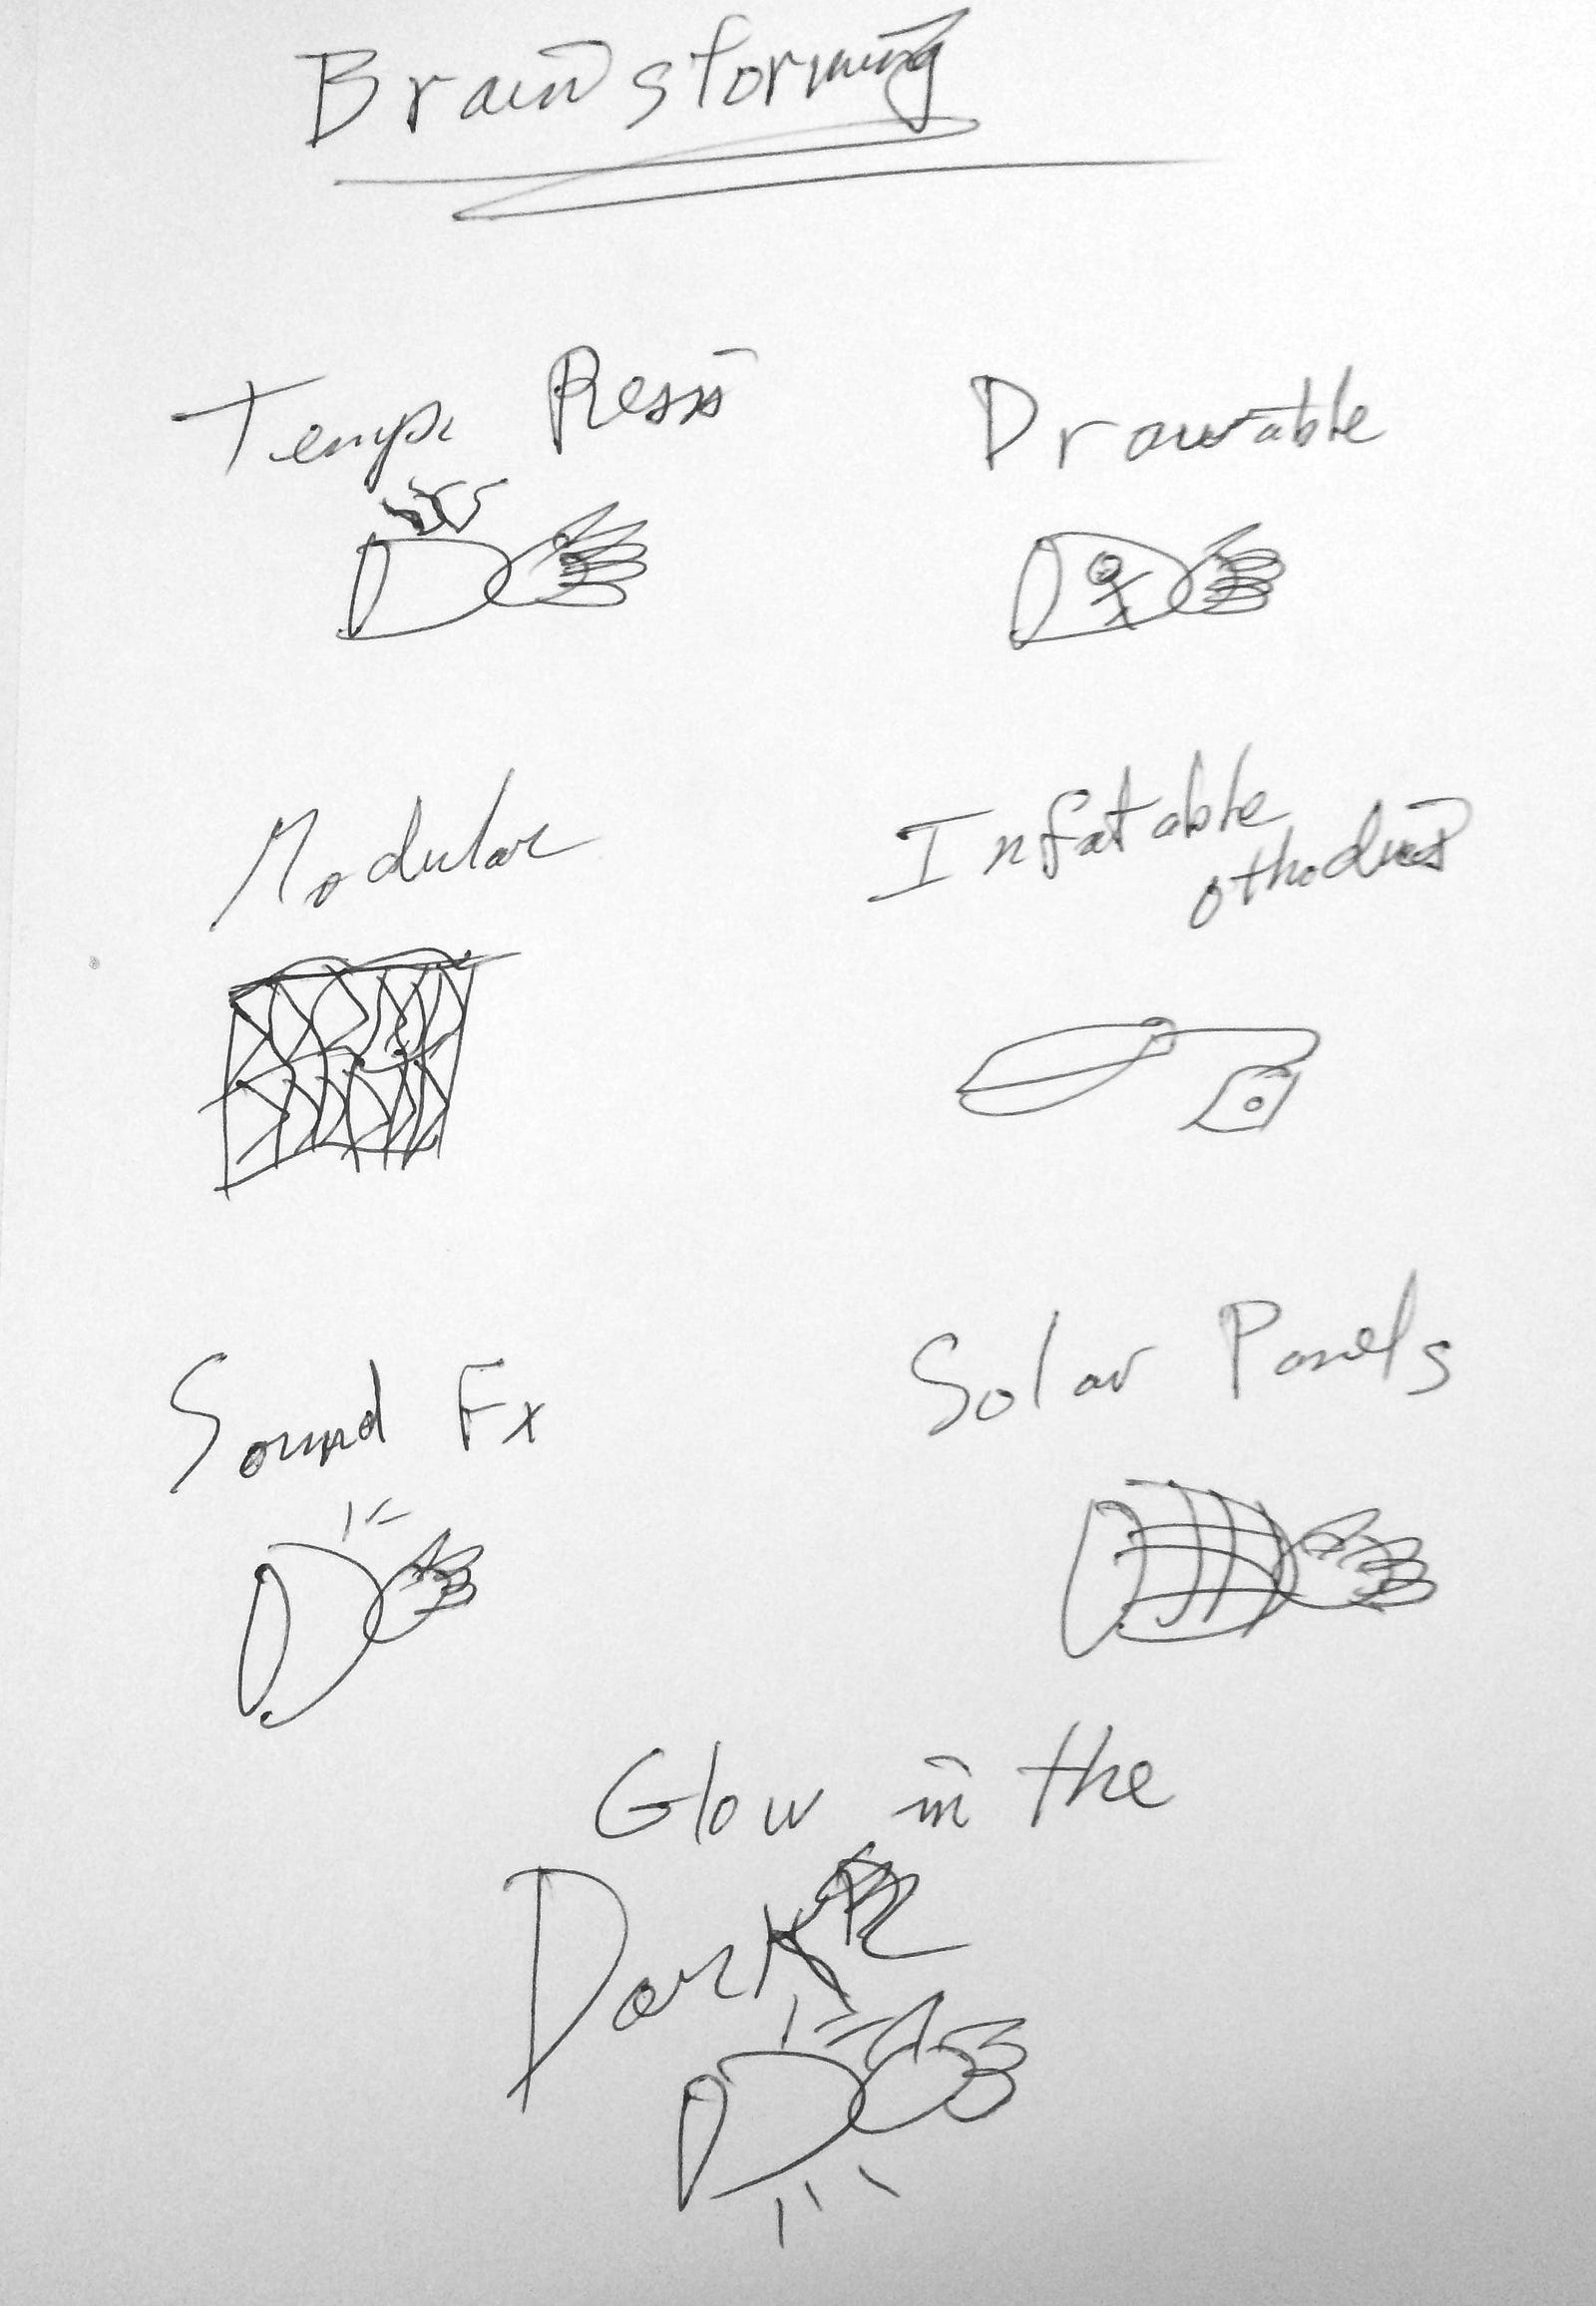 Brainstorming
Temp Resis
Drawable
Modular
Infatable
Sound Fx
Solar Panels
Glow in the
Dark